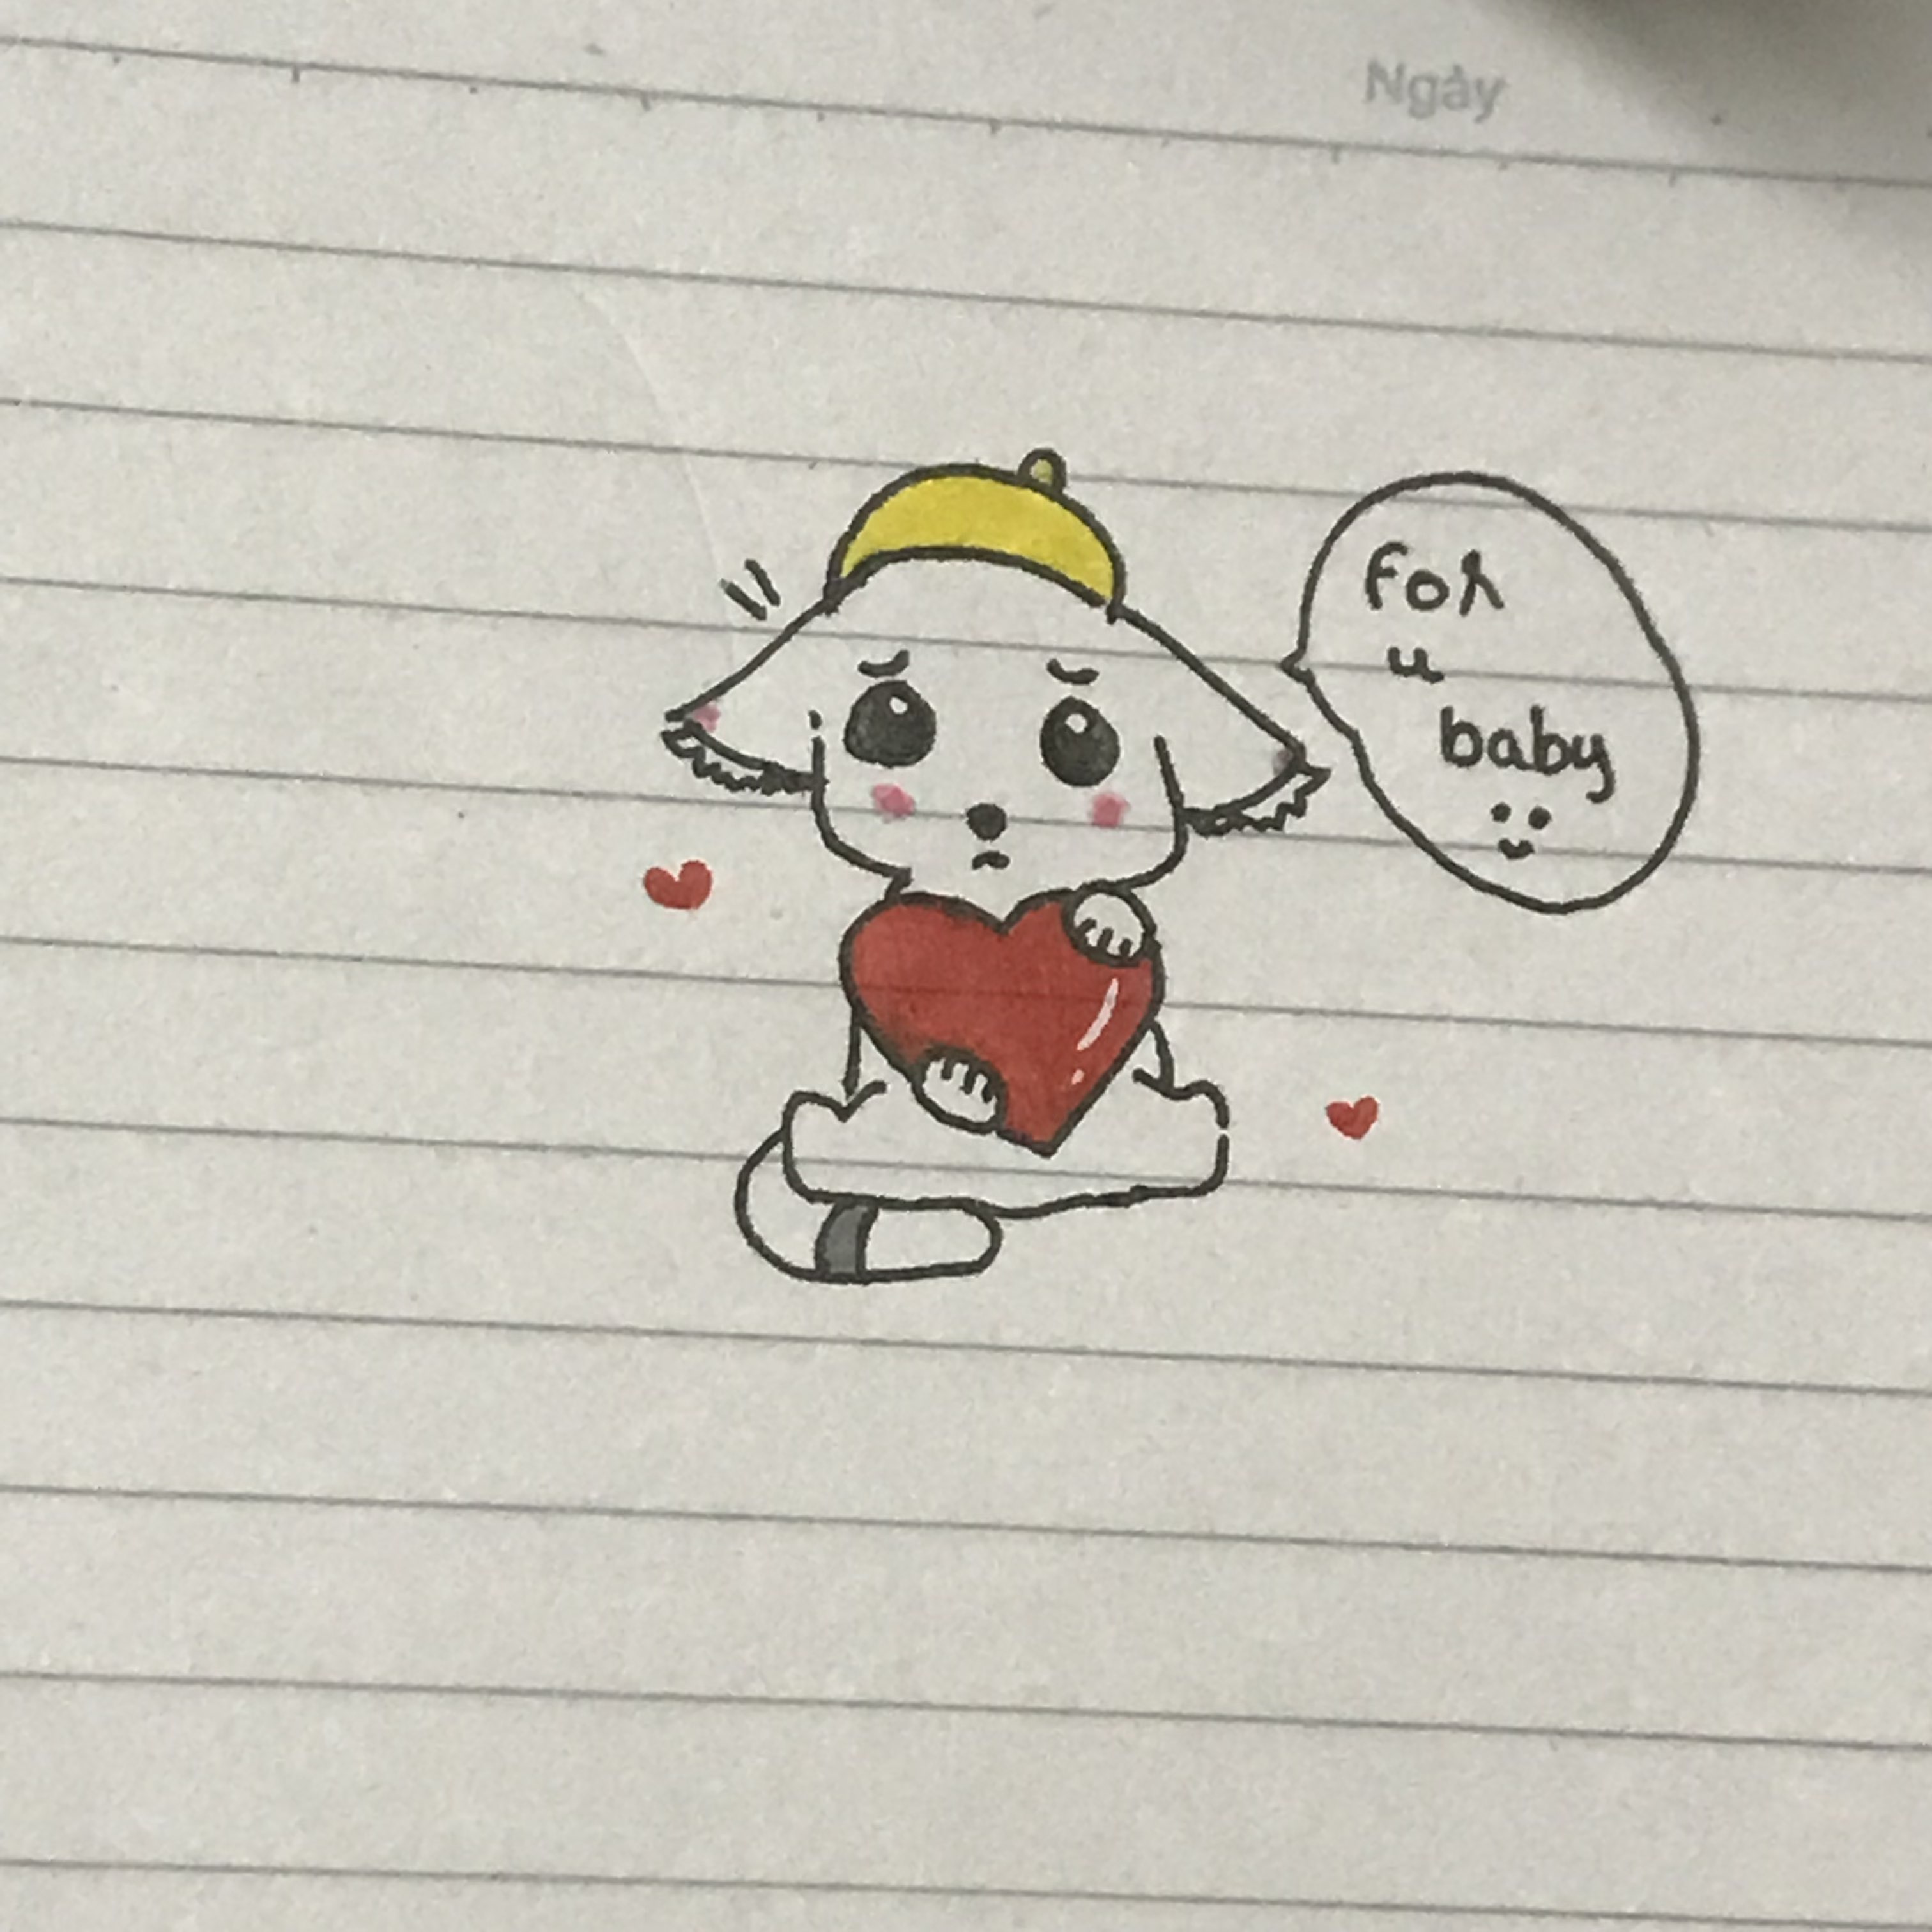 Ngày
for
u
baby